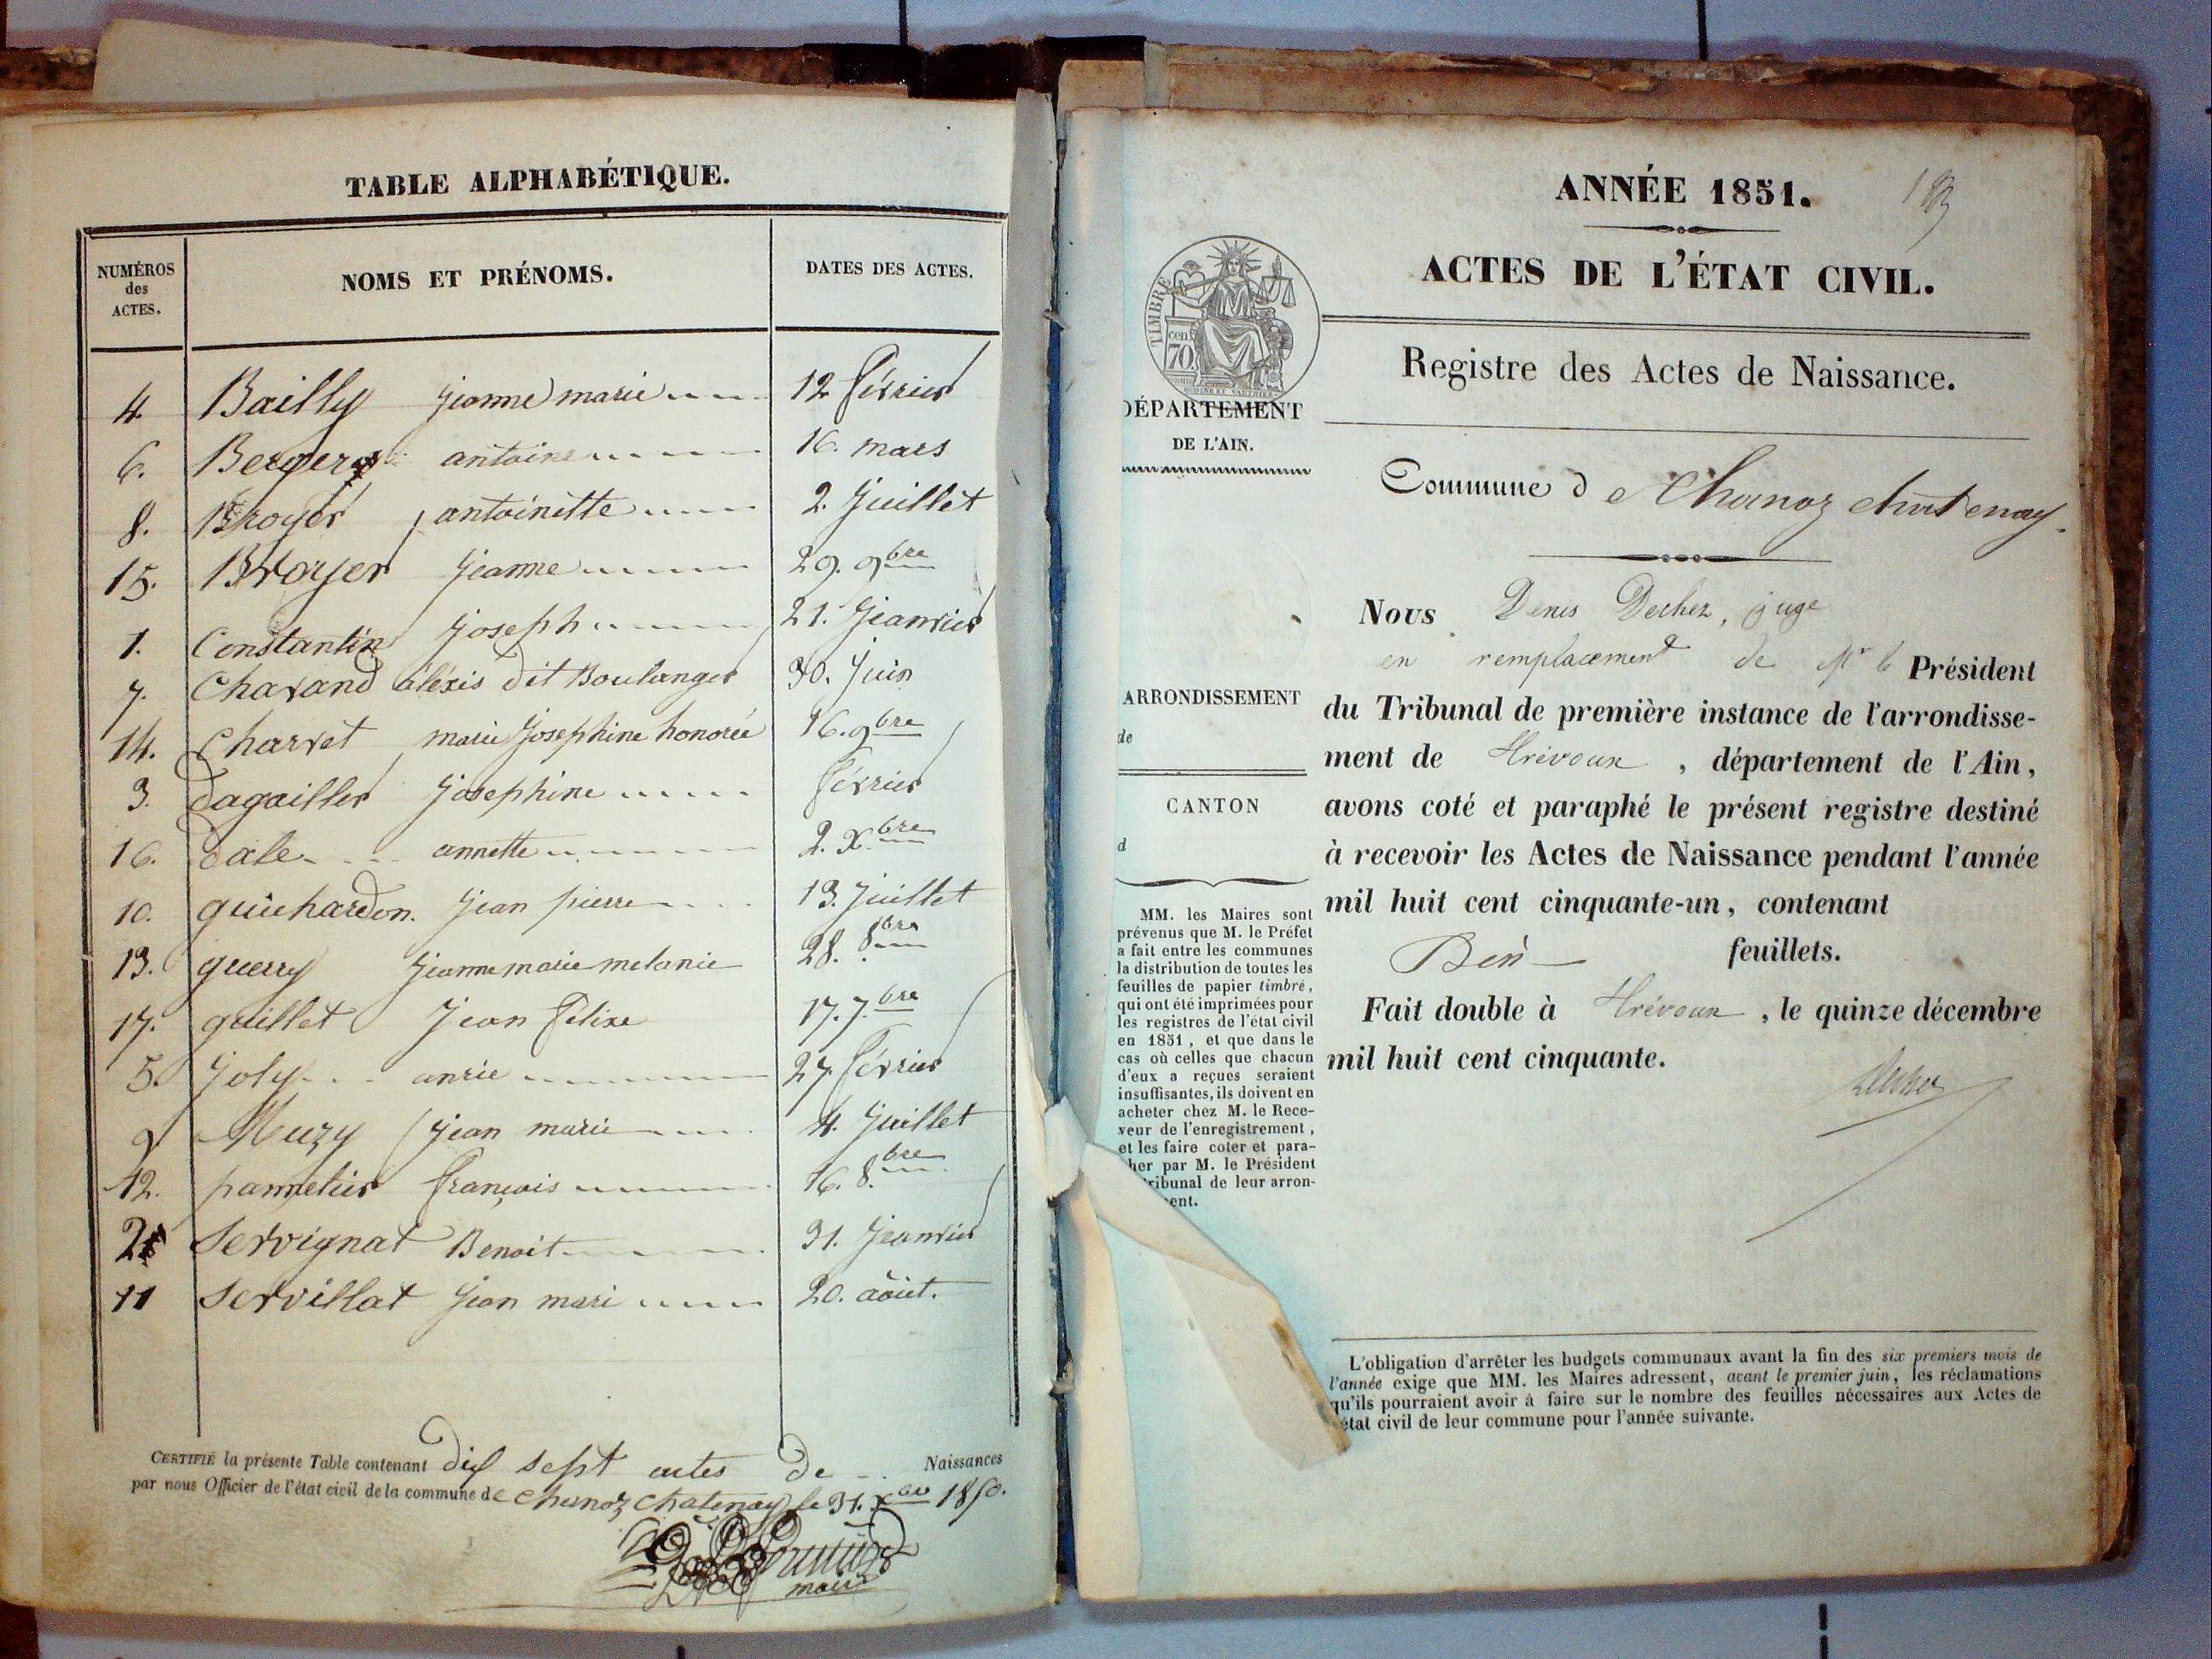 TABLE ALPHABÉTIQUE.
NUMÉROS des ACTES. NOMS ET PRÉNOMS. DATES DES ACTES.
4. Bailly jeanne marie 12 février
6. antoine 16. mars
8. Broyer antoinette 2. juillet
15. Broyer jeanne 29. 9bre
1. Constantin joseph 21. jeanvier
7. Chavand aléxis dit Boulanger 30. juin
14. Charvet marie josephine honorée 16. 9bre
3. dagailler josephine février
16. annette 2. Xbre
10. guichardon. jean pierre 13. juillet
13. guerry jeanne marie melanie 28. 8bre
17. guillet jean félixe 17. 7bre
5. joly anrie 27. février
9 Muzy jean marie 4. juillet
12. pannetier françois 16. 8bre
2 Servignat Benoit 31. jeanvier
11 Servillat jean mari 20. aôut.
CERTIFIÉ la présente Table contenant dix sept actes de Naissances
par nous Officier de l'état civil de la commune de chanoz chatenay le 31. Xbre 1850.
maire
ANNÉE 1851.
ACTES DE L'ÉTAT CIVIL.
TIMBRE
cen
70
Registre des Actes de Naissance.
DÉPARTEMENT
DE L'AIN.
Commune d e Chanoz chatenay.
Nous Denis Dechez, juge
en remplacement de Mr le Président
ARRONDISSEMENT
de
du Tribunal de première instance de l'arrondisse-
ment de Trévoux, département de l'Ain,
avons coté et paraphé le présent registre destiné
à recevoir les Actes de Naissance pendant l'année
mil huit cent cinquante-un, contenant
feuillets.
Fait double à Trévoux, le quinze décembre
mil huit cent cinquante.
Dechez
CANTON
d
MM. les Maires sont
prévenus que M. le Préfet
a fait entre les communes
la distribution de toutes les
feuilles de papier timbré,
qui ont été imprimées pour
les registres de l'état civil
en 1851, et que dans le
cas où celles que chacun
d'eux a reçues seraient
insuffisantes, ils doivent en
acheter chez M. le Rece-
veur de l'enregistrement,
et les faire coter et para-
pher par M. le Président
ribunal de leur arron-
ent.
L'obligation d'arrêter les budgets communaux avant la fin des six premiers mois de
l'année exige que MM. les Maires adressent, avant le premier juin, les réclamations
qu'ils pourraient avoir à faire sur le nombre des feuilles nécessaires aux Actes de
état civil de leur commune pour l'année suivante.